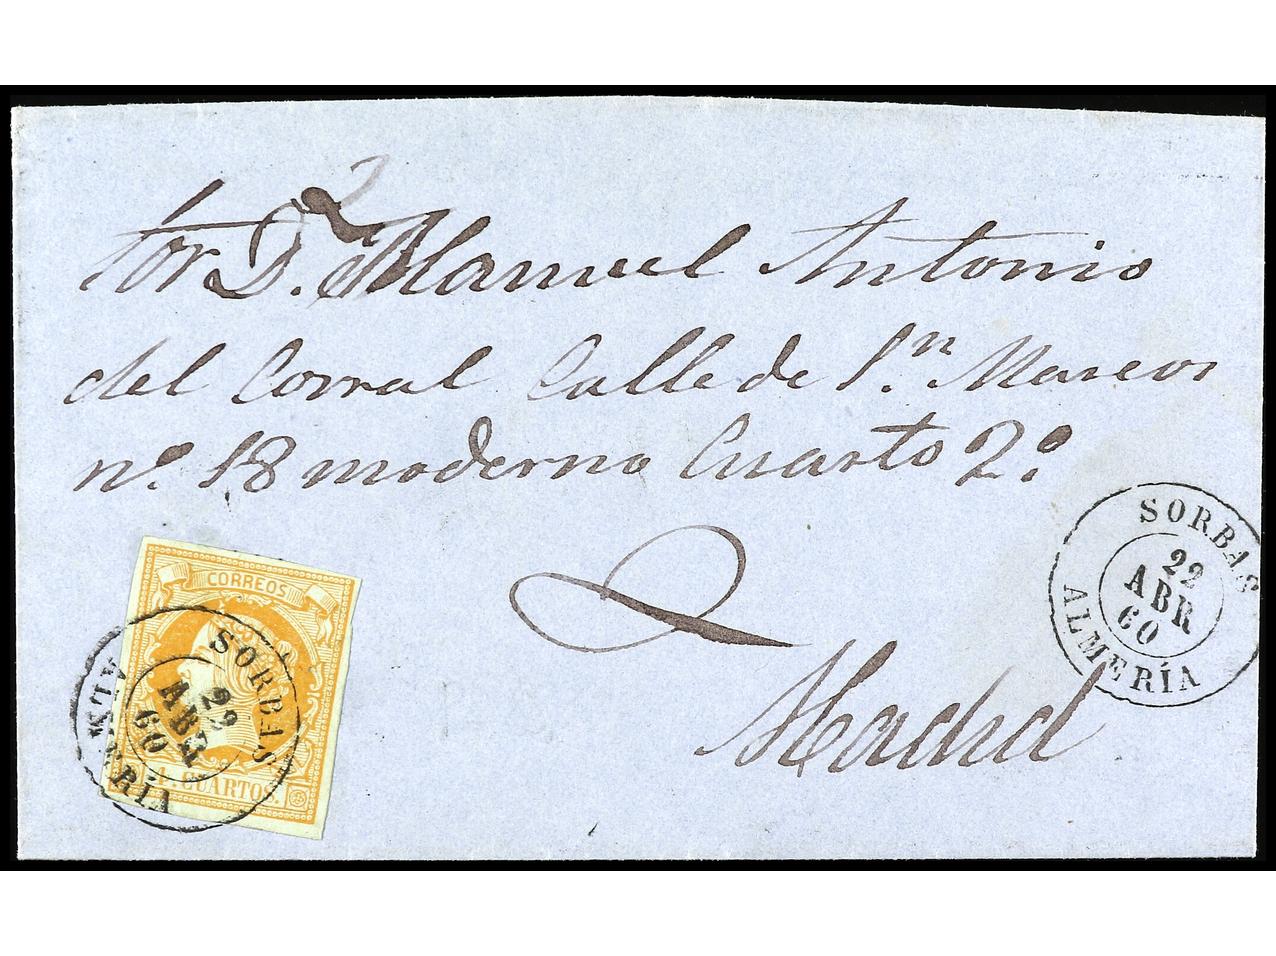 Sor. D.n Manuel Antonio
del Corral Calle de S.n Marcos
nº. 18 moderno Cuarto 2º.
Madrid
SORBAS
22
ABR
60
ALMERÍA
CORREOS
SORBAS
22
ABR
60
ALMERÍA
4 CUARTOS.